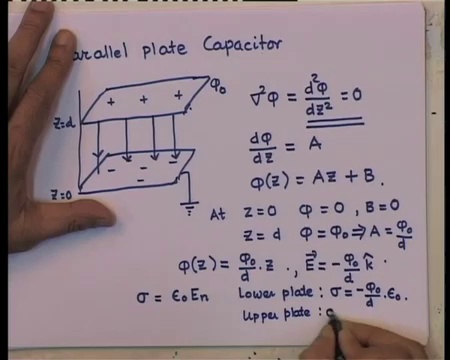 arallel plate Capacitor
φ₀
+ + +
z=d
- - -
- -
z=0
∇²φ = d²φ/dz² = 0
dφ/dz = A
φ(z) = Az + B.
At z=0 φ=0, B=0
z=d φ=φ₀ ⇒ A = φ₀/d
φ(z) = φ₀/d . z , E⃗ = -φ₀/d k̂
σ = ε₀En Lower plate : σ = -φ₀/d . ε₀.
Upper plate :